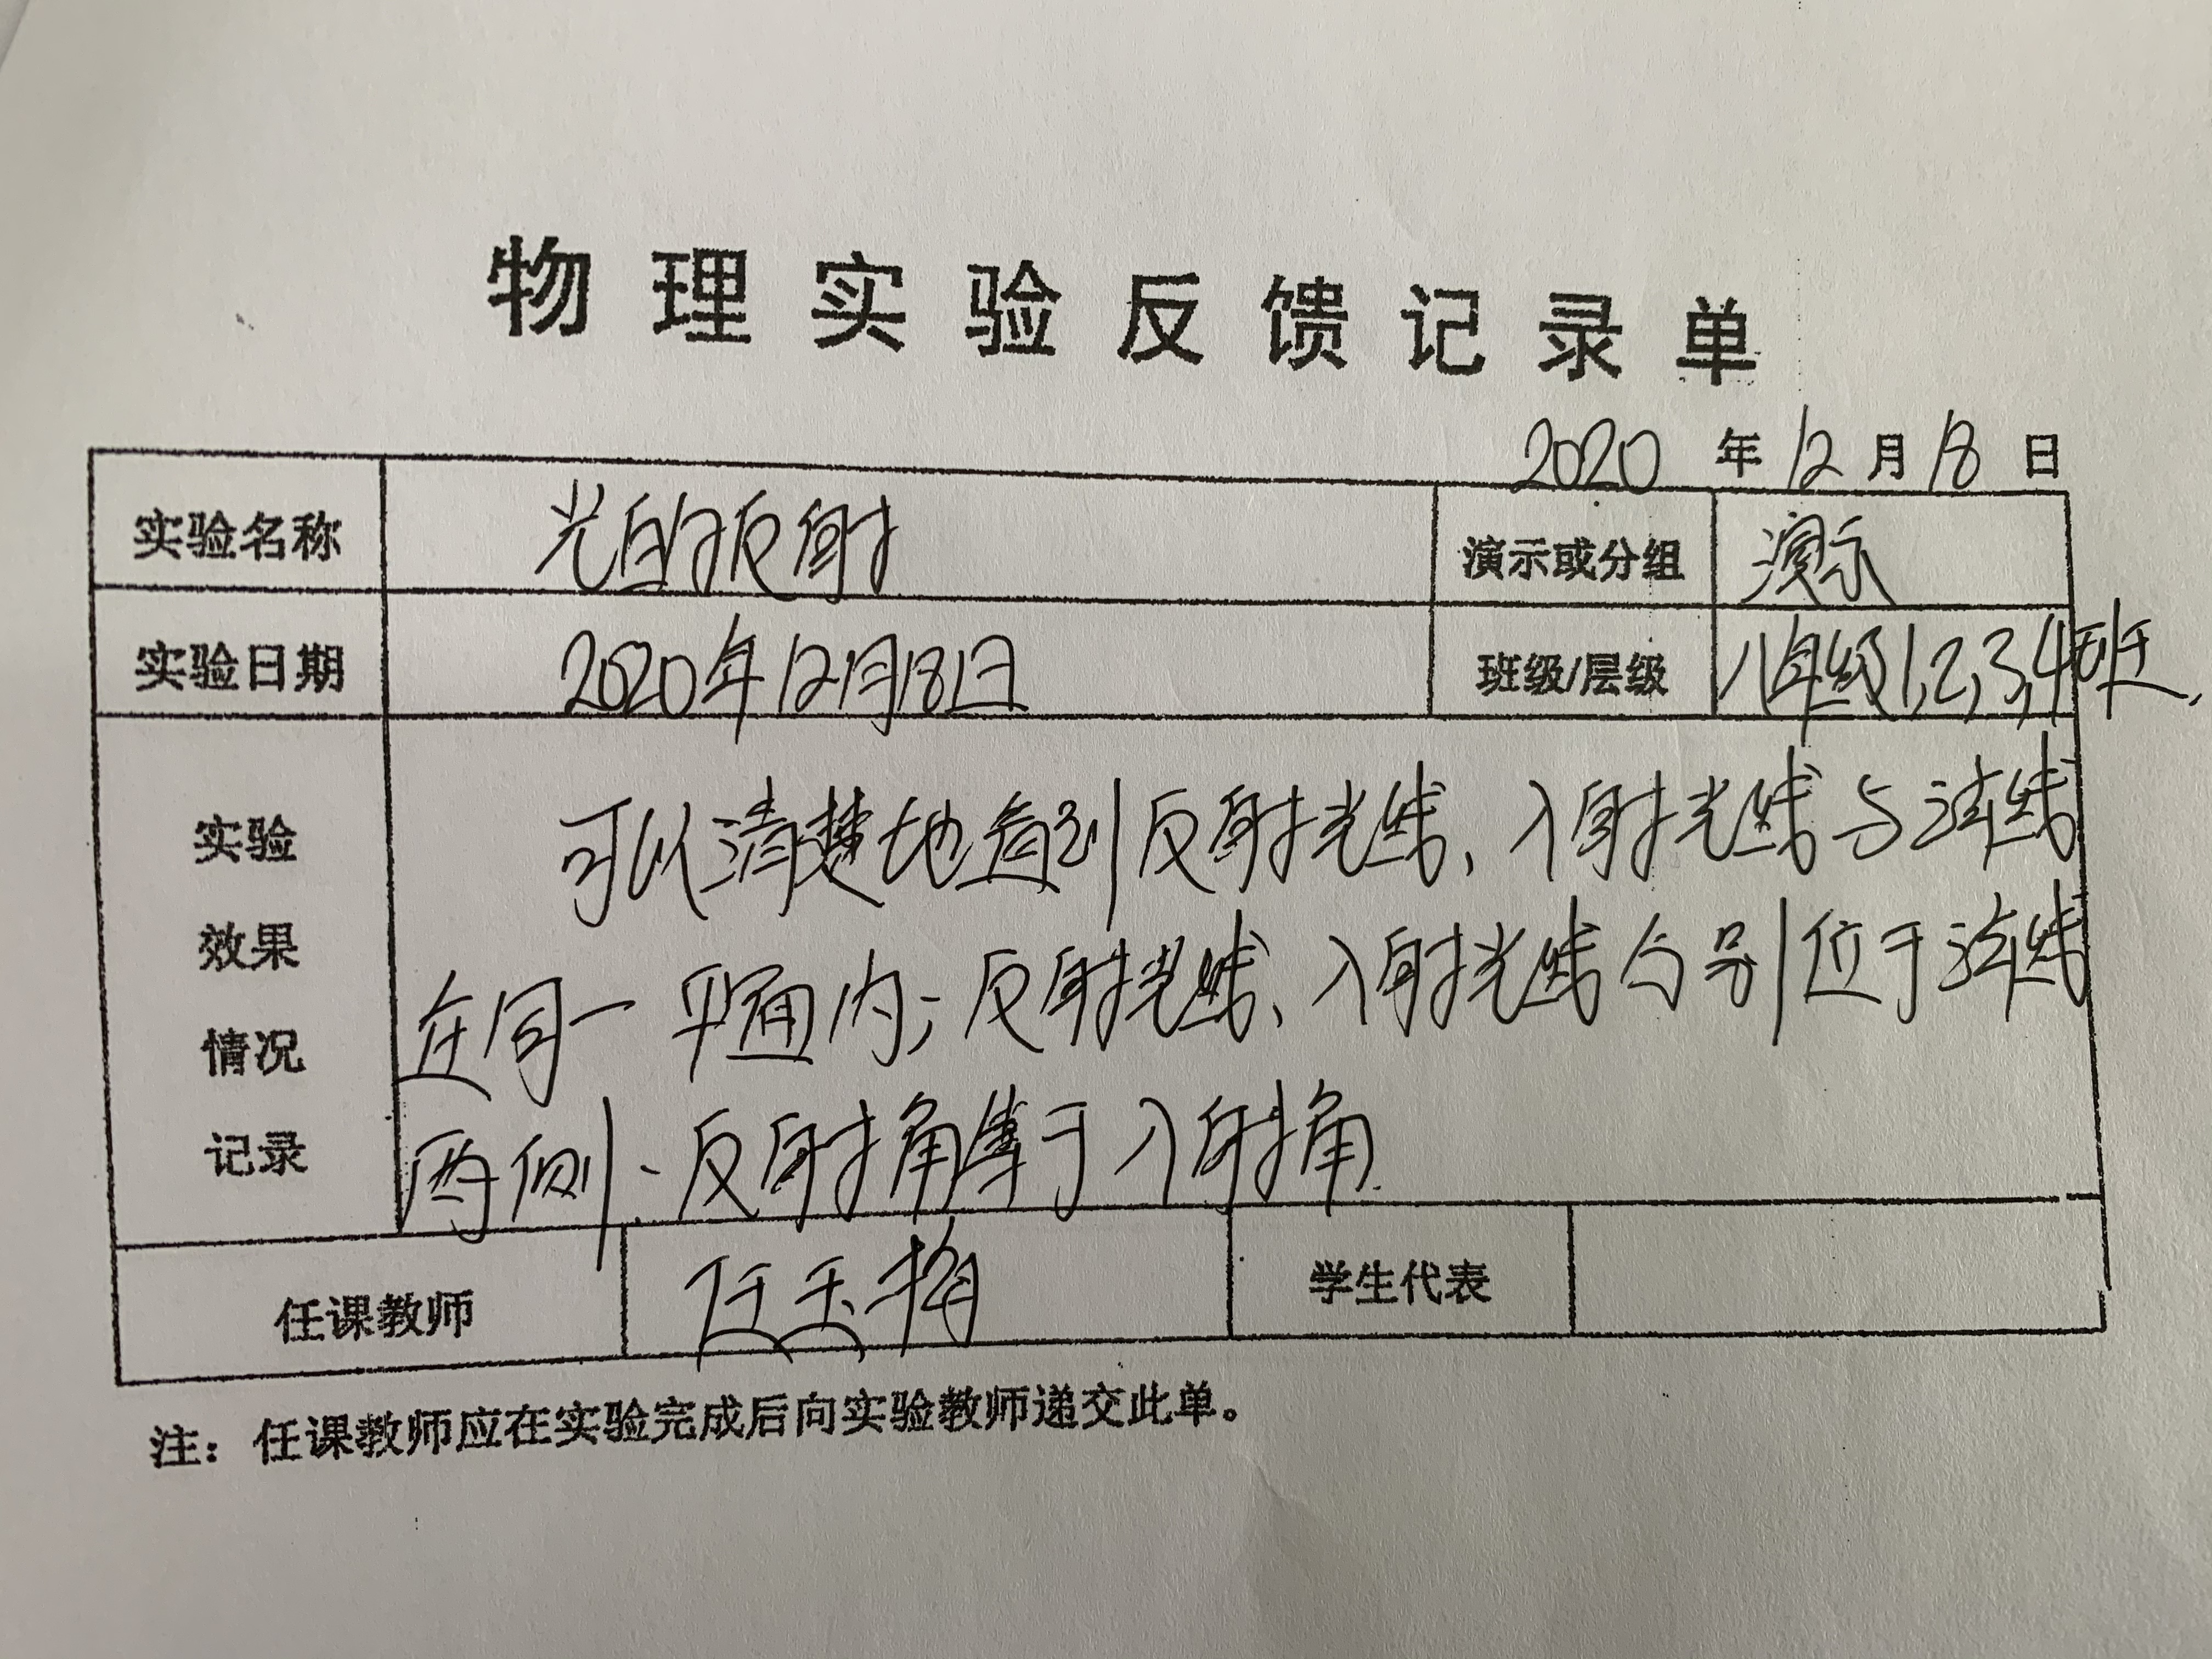 物理实验反馈记录单
2020年12月18日
实验名称 光的反射 演示或分组 演示
实验日期 2020年12月18日 班级/层级 八年级1,2,3,4班,
实验
效果
情况
记录
可以清楚地看到反射光线、入射光线与法线
在同一平面内;反射光线、入射光线与别位于法线
两侧、反射角等于入射角.
任课教师 任玉梅 学生代表
注：任课教师应在实验完成后向实验教师递交此单。